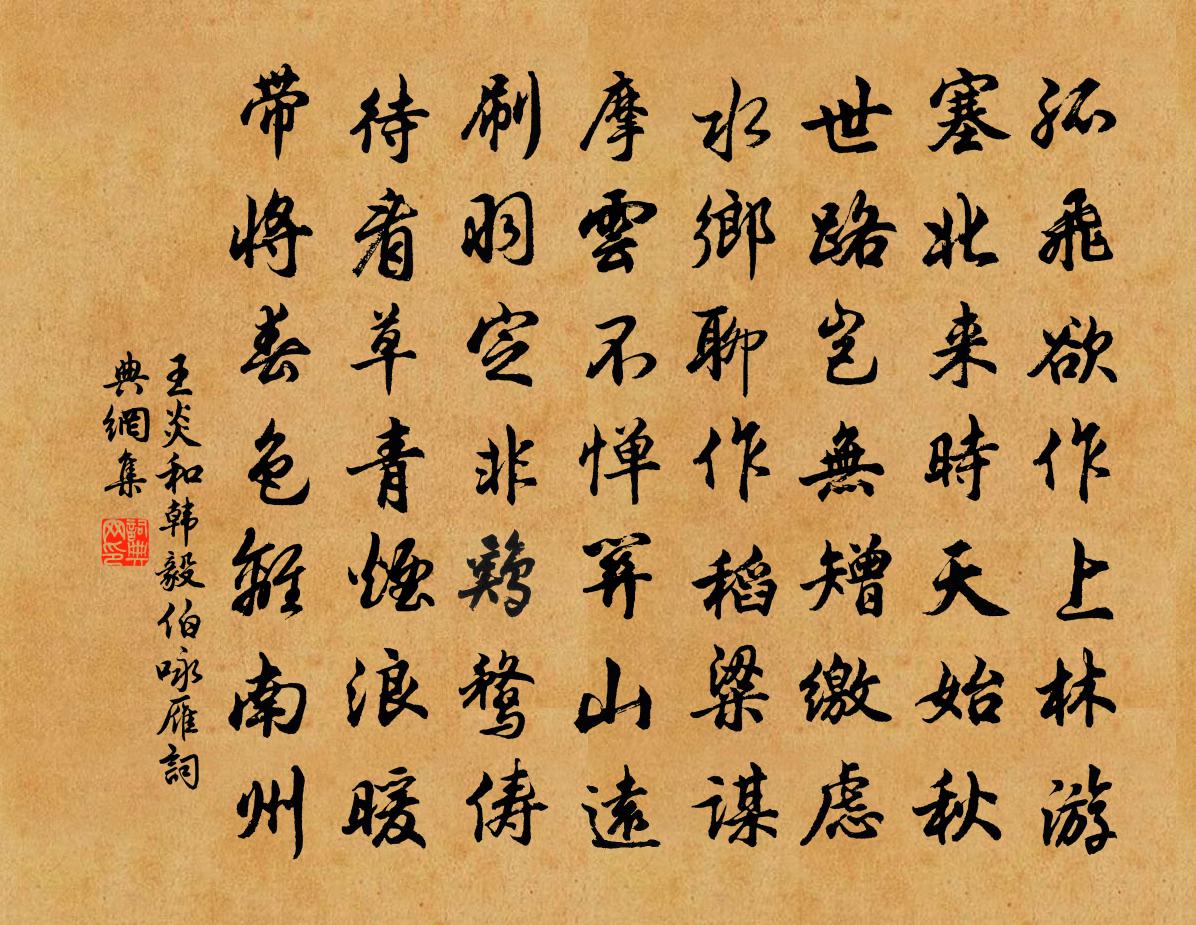 孤飛欲作上林游
塞北来時天始秋
世路豈無矰繳慮
水鄉聊作稻粱謀
摩雲不憚關山遠
刷羽定非鷄鶩儔
待看草青煙浪暖
帶將春色離南州
王炎和韩毅伯咏雁詞
典網集
詞典网印